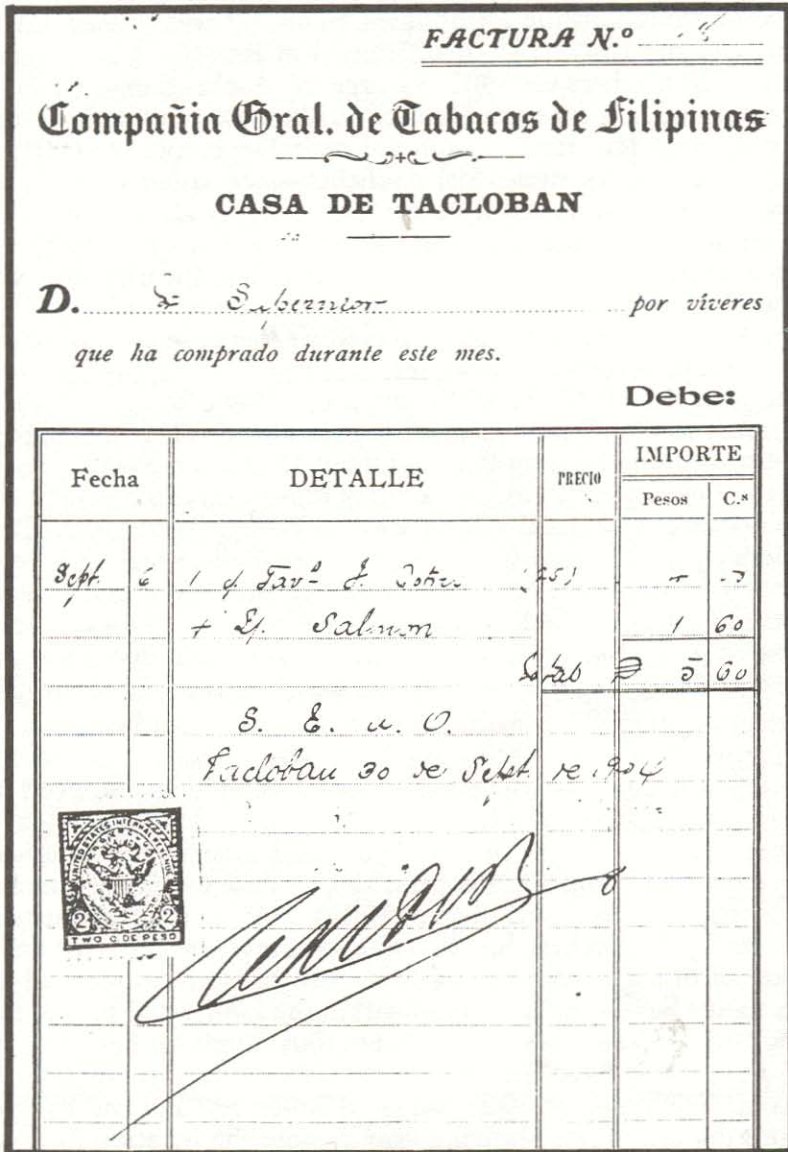 FACTURA N.º
Compañia Gral. de Tabacos de Filipinas
CASA DE TACLOBAN
D. Superior por víveres
que ha comprado durante este mes.
Debe:
Fecha DETALLE PRECIO IMPORTE
Pesos C.s
Sept. 6 1
Salmon 1 60
5 60
S. E. u. O.
Tacloban 30 de Sept. de 1904
UNITED STATES INTERNAL REVENUE
2 2
TWO C. DE PESO